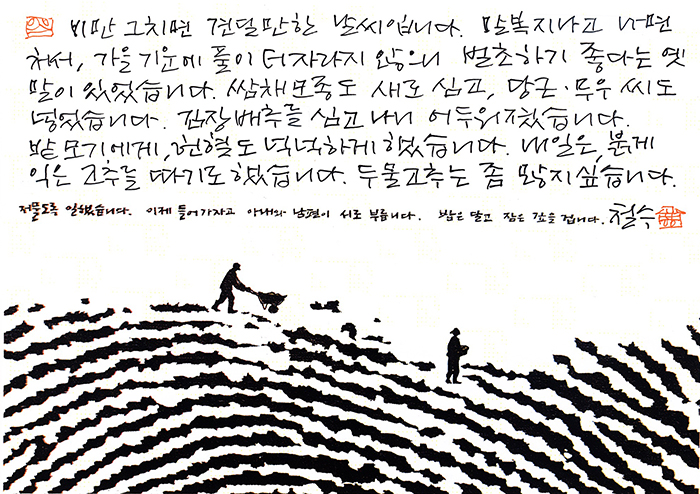 비만 그치면 견딜만한 날씨입니다. 말복 지나고 나면
처서, 가을 기운에 풀이 더 자라지 않으니 벌초하기 좋다는 옛
말이 있었습니다. 쌈채 모종도 새로 심고, 당근·무우 씨도
넣었습니다. 김장배추를 심고 나니 어두워졌습니다.
밭 모기에게, 헌혈도 넉넉하게 했습니다. 내일은, 붉게
익은 고추를 따기로 했습니다. 두물고추는 좀 많지 싶습니다.
저물도록 일했습니다. 이제 들어가자고 아내와 남편이 서로 부릅니다. 밤은 달고 잠은 깊을 겁니다. 철수